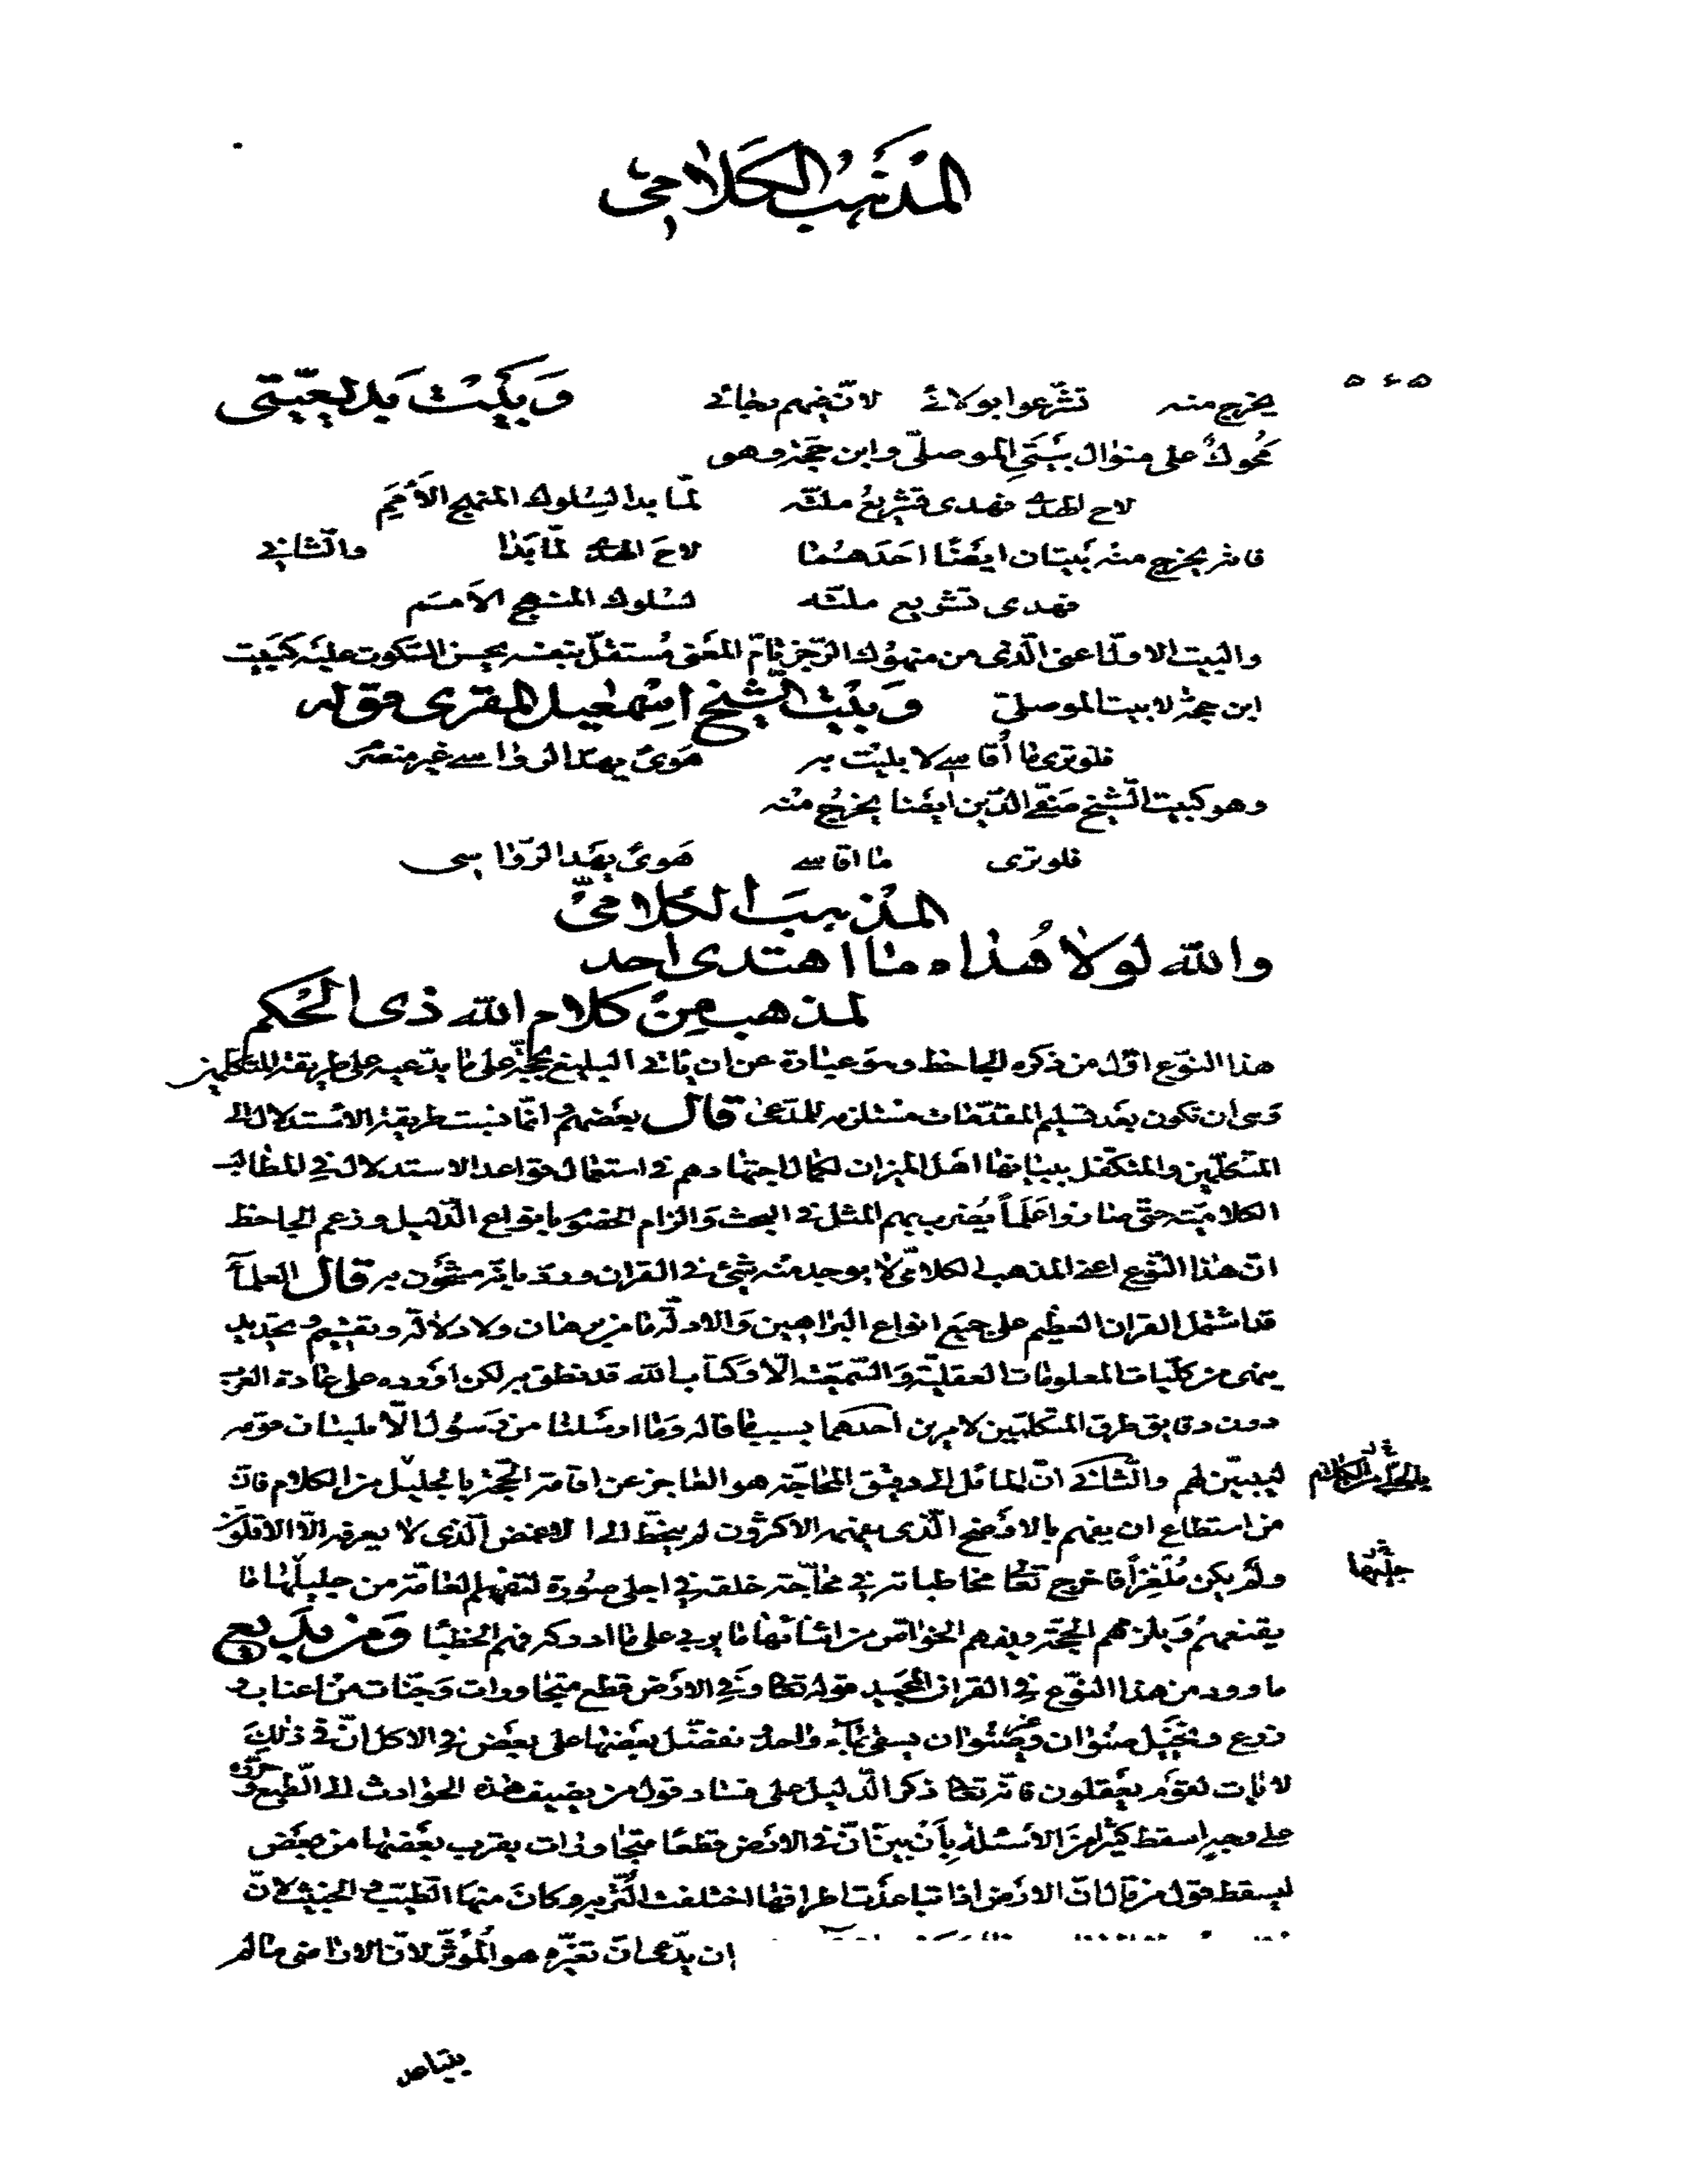 المذهب الكلامي
٥٤٥
يخرج منه تشرعوا بولائي لأن فيهم وبيت بديعيتي
محوك على منوال بيتي الموصلي وابن حجة وهو
لاح الهدى فهدى تشريع ملته لما بدا لسلوك المنهج الأمم
فانه يخرج منه بيتان ايضا احدهما لاح الهدى لما بدا والثاني
فهدى تشريع ملته لسلوك المنهج الأمم
والبيت الاول اعني الذي من منهوك الرجز تام المعنى مستقل بنفسه يحسن السكوت عليه كبيت
ابن حجة لا بيت الموصلي وبيت الشيخ اسمعيل المقري قوله
فلو ترى ما أقاسي لا بليت به هوى يهد الرواسي غير منصرم
وهو كبيت الشيخ صفي الدين ايضا يخرج منه
فلو ترى ما اقاسي هوى يهد الرواسي
المذهب الكلامي
والله لولا هداه ما اهتدى احد
لمذهب من كلام الله ذي الحكم
هذا النوع اول من ذكره الجاحظ وهو عبارة عن ان يأتي البليغ بحجة على ما يدعيه على طريقة المتكلمين
وهي أن تكون بعد تسليم المقدمات مستلزمة للمدعى قال بعضهم وانما نسبت طريقة الاستدلال الى
المتكلمين والمتكفل ببيانها اهل الميزان لكمال اجتهادهم في استعمال قواعد الاستدلال في المطالب
الكلامية حتى صاروا علما يضرب بهم المثل في البحث والزام الخصوم بانواع الدليل وزعم الجاحظ
ان هذا النوع اعني المذهب الكلامي لا يوجد منه شيئ في القران ورد بانه مشحون به قال العلمآء
قد اشتمل القران العظيم على جميع انواع البراهين والادلة وما من برهان ولا دلالة وتقسيم وتحديد
ينبئ من كليات المعلومات العقلية والسمعية الا وكتاب الله قد نطق به لكن اورده على عادة العرب
دون دقايق طرق المتكلمين لامرين احدهما بسبب ما قاله وما ارسلنا من رسول الا بلسان قومه
ليبين لهم والثاني ان المائل الى دقيق المحاجة هو العاجز عن اقامة الحجة بالجليل من الكلام فان
من استطاع ان يفهم بالاوضح الذي يفهمه الاكثرون لم ينحط الى الاغمض الذي لا يعرفه الا الاقلون
جليتها
ولم يكن ملغزا فاخرج تعالى مخاطباته في محاجة خلقه في اجلى صورة لتفهم العامة من جليلها ما
يقنعهم ويلزمهم الحجة ويفهم الخواص من اثنائها ما يربي على ما ادركه فهم الخطبا ومن بديع
ما ورد من هذا النوع في القران المجيد قوله تعالى وفي الارض قطع متجاورات وجنات من اعناب و
زرع ونخيل صنوان وغير صنوان يسقى بمآء واحد ونفضل بعضها على بعض في الاكل ان في ذلك
لايات لقوم يعقلون فانه تعالى ذكر الدليل على فساد قول من يضيف هذه الحوادث الى الطبع و
على وجه اسقط كثيرا من الاسئلة بأن بين ان في الارض قطعا متجاورات يقرب بعضها من بعض
ليسقط قول من قال ان الارض اذا تباعدت اطرافها اختلفت التربة وكان منها الطيب والخبيث لان
ان يدعى ان تغيره هو المؤثر لان الاراضي مالم